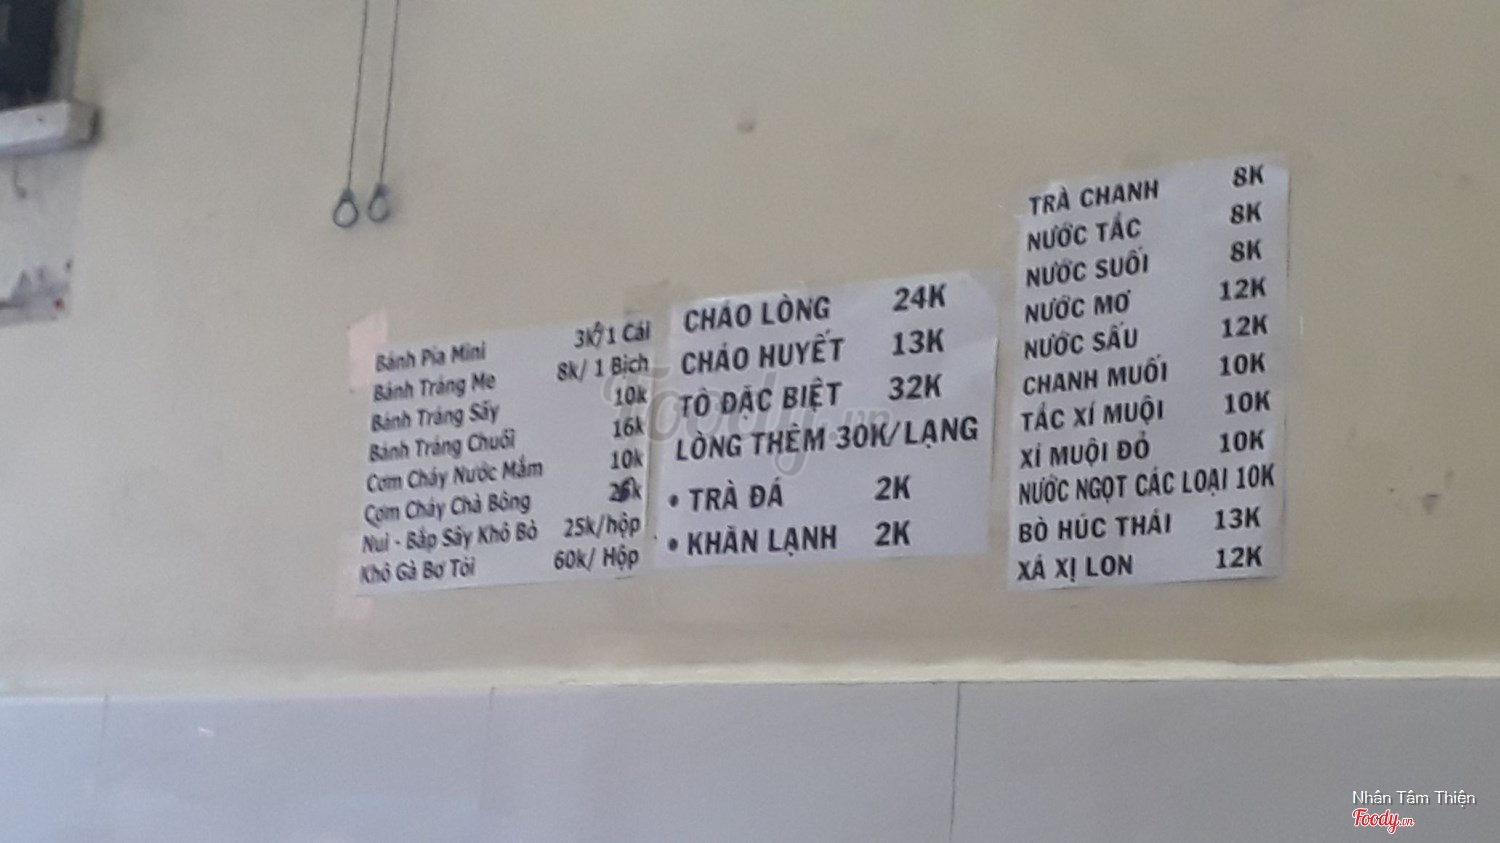 Bánh Pía Mini 3k/1 Cái
Bánh Tráng Me 8k/ 1 Bịch
Bánh Tráng Sấy 10k
Bánh Tráng Chuối 16k
Cơm Cháy Nước Mắm 10k
Cơm Cháy Chà Bông
Nui - Bắp Sấy Khô Bò 25k/hộp
Khô Gà Bơ Tỏi 60k/ Hộp
CHÁO LÒNG 24K
CHÁO HUYẾT 13K
TÔ ĐẶC BIỆT 32K
LÒNG THÊM 30K/LẠNG
• TRÀ ĐÁ 2K
• KHĂN LẠNH 2K
TRÀ CHANH 8K
NƯỚC TẮC 8K
NƯỚC SUỐI 8K
NƯỚC MƠ 12K
NƯỚC SẤU 12K
CHANH MUỐI 10K
TẮC XÍ MUỘI 10K
XÍ MUỘI ĐỎ 10K
NƯỚC NGỌT CÁC LOẠI 10K
BÒ HÚC THÁI 13K
XÁ XỊ LON 12K
Foody.vn
Nhân Tâm Thiện
Foody.vn